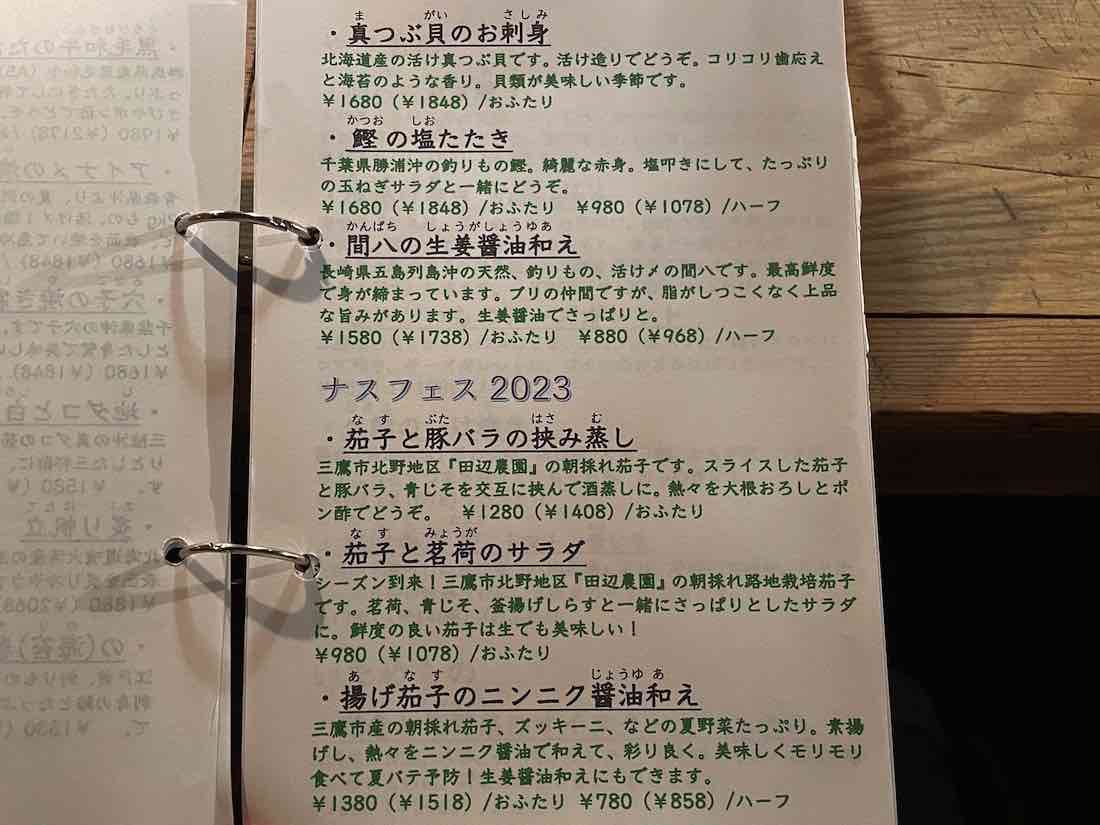 ま がい さしみ
・真つぶ貝のお刺身
北海道産の活け真つぶ貝です。活け造りでどうぞ。コリコリ歯応え
と海苔のような香り。貝類が美味しい季節です。
￥1680（￥1848）/おふたり
かつお しお
・鰹の塩たたき
千葉県勝浦沖の釣りもの鰹。綺麗な赤身。塩叩きにして、たっぷり
の玉ねぎサラダと一緒にどうぞ。
￥1680（￥1848）/おふたり ￥980（￥1078）/ハーフ
かんぱち しょうがしょうゆあ
・間八の生姜醤油和え
長崎県五島列島沖の天然、釣りもの、活け〆の間八です。最高鮮度
で身が締まっています。ブリの仲間ですが、脂がしつこくなく上品
な旨みがあります。生姜醤油でさっぱりと。
￥1580（￥1738）/おふたり ￥880（￥968）/ハーフ
ナスフェス 2023
なす ぶた はさ む
・茄子と豚バラの挟み蒸し
三鷹市北野地区『田辺農園』の朝採れ茄子です。スライスした茄子
と豚バラ、青じそを交互に挟んで酒蒸しに。熱々を大根おろしとポ
ン酢でどうぞ。 ￥1280（￥1408）/おふたり
なす みょうが
・茄子と茗荷のサラダ
シーズン到来！三鷹市北野地区『田辺農園』の朝採れ路地栽培茄子
です。茗荷、青じそ、釜揚げしらすと一緒にさっぱりとしたサラダ
に。鮮度の良い茄子は生でも美味しい！
￥980（￥1078）/おふたり
あ なす じょうゆ あ
・揚げ茄子のニンニク醤油和え
三鷹市産の朝採れ茄子、ズッキーニ、などの夏野菜たっぷり。素揚
げし、熱々をニンニク醤油で和えて、彩り良く。美味しくモリモリ
食べて夏バテ予防！生姜醤油和えにもできます。
￥1380（￥1518）/おふたり ￥780（￥858）/ハーフ